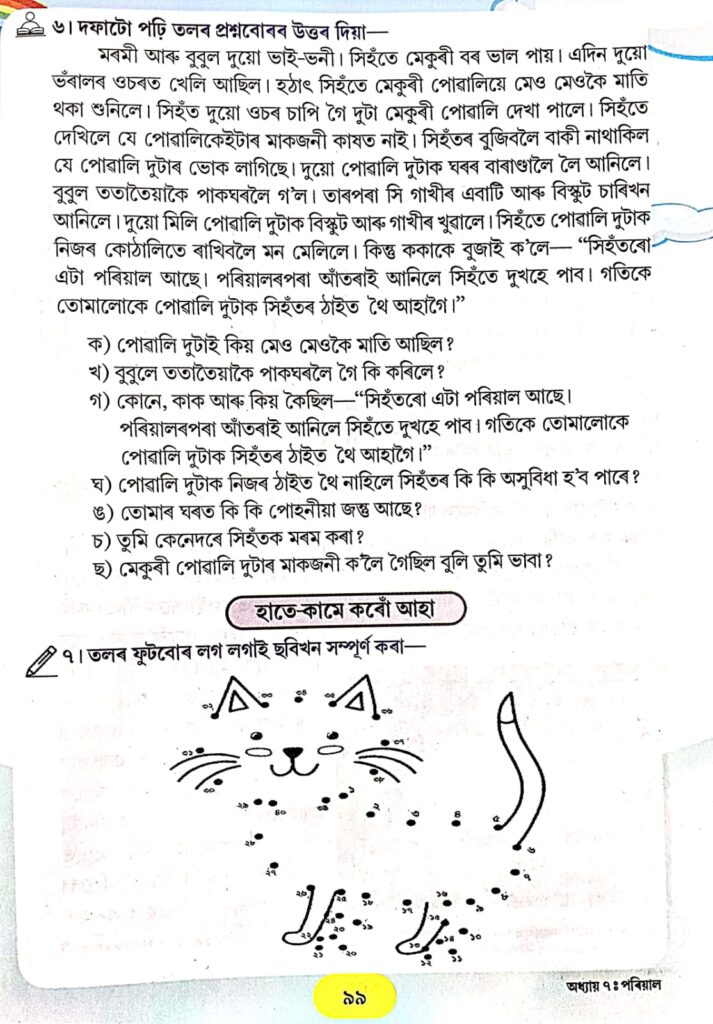 ৬। দফাটো পঢ়ি তলৰ প্ৰশ্নবোৰৰ উত্তৰ দিয়া—
মৰমী আৰু বুবুল দুয়ো ভাই-ভনী। সিহঁতে মেকুৰী বৰ ভাল পায়। এদিন দুয়ো
ভঁৰালৰ ওচৰত খেলি আছিল। হঠাৎ সিহঁতে মেকুৰী পোৱালিয়ে মেও মেওকৈ মাতি
থকা শুনিলে। সিহঁত দুয়ো ওচৰ চাপি গৈ দুটা মেকুৰী পোৱালি দেখা পালে। সিহঁতে
দেখিলে যে পোৱালিকেইটাৰ মাকজনী কাষত নাই। সিহঁতৰ বুজিবলৈ বাকী নাথাকিল
যে পোৱালি দুটাৰ ভোক লাগিছে। দুয়ো পোৱালি দুটাক ঘৰৰ বাৰাণ্ডালৈ লৈ আনিলে।
বুবুল ততাতৈয়াকৈ পাকঘৰলৈ গ'ল। তাৰপৰা সি গাখীৰ এবাটি আৰু বিস্কুট চাৰিখন
আনিলে। দুয়ো মিলি পোৱালি দুটাক বিস্কুট আৰু গাখীৰ খুৱালে। সিহঁতে পোৱালি দুটাক
নিজৰ কোঠালিতে ৰাখিবলৈ মন মেলিলে। কিন্তু ককাকে বুজাই ক'লে— “সিহঁতৰো
এটা পৰিয়াল আছে। পৰিয়ালৰপৰা আঁতৰাই আনিলে সিহঁতে দুখহে পাব। গতিকে
তোমালোকে পোৱালি দুটাক সিহঁতৰ ঠাইত থৈ আহাগৈ।”
ক) পোৱালি দুটাই কিয় মেও মেওকৈ মাতি আছিল?
খ) বুবুলে ততাতৈয়াকৈ পাকঘৰলৈ গৈ কি কৰিলে?
গ) কোনে, কাক আৰু কিয় কৈছিল—“সিহঁতৰো এটা পৰিয়াল আছে।
পৰিয়ালৰপৰা আঁতৰাই আনিলে সিহঁতে দুখহে পাব। গতিকে তোমালোকে
পোৱালি দুটাক সিহঁতৰ ঠাইত থৈ আহাগৈ।”
ঘ) পোৱালি দুটাক নিজৰ ঠাইত থৈ নাহিলে সিহঁতৰ কি কি অসুবিধা হ'ব পাৰে?
ঙ) তোমাৰ ঘৰত কি কি পোহনীয়া জন্তু আছে?
চ) তুমি কেনেদৰে সিহঁতক মৰম কৰা?
ছ) মেকুৰী পোৱালি দুটাৰ মাকজনী ক'লৈ গৈছিল বুলি তুমি ভাবা?
হাতে-কামে কৰোঁ আহা
৭। তলৰ ফুটবোৰ লগ লগাই ছবিখন সম্পূৰ্ণ কৰা—
৩৪
১
২
৩
৪
৫
৬
৭
৮
৯
১০
১১
১২
১৪
১৫
১৬
১৭
১৮
১৯
২০
২১
২২
২৪
২৫
২৬
২৭
২৮
২৯
৪০
অধ্যায় ৭ঃ পৰিয়াল
৯৯